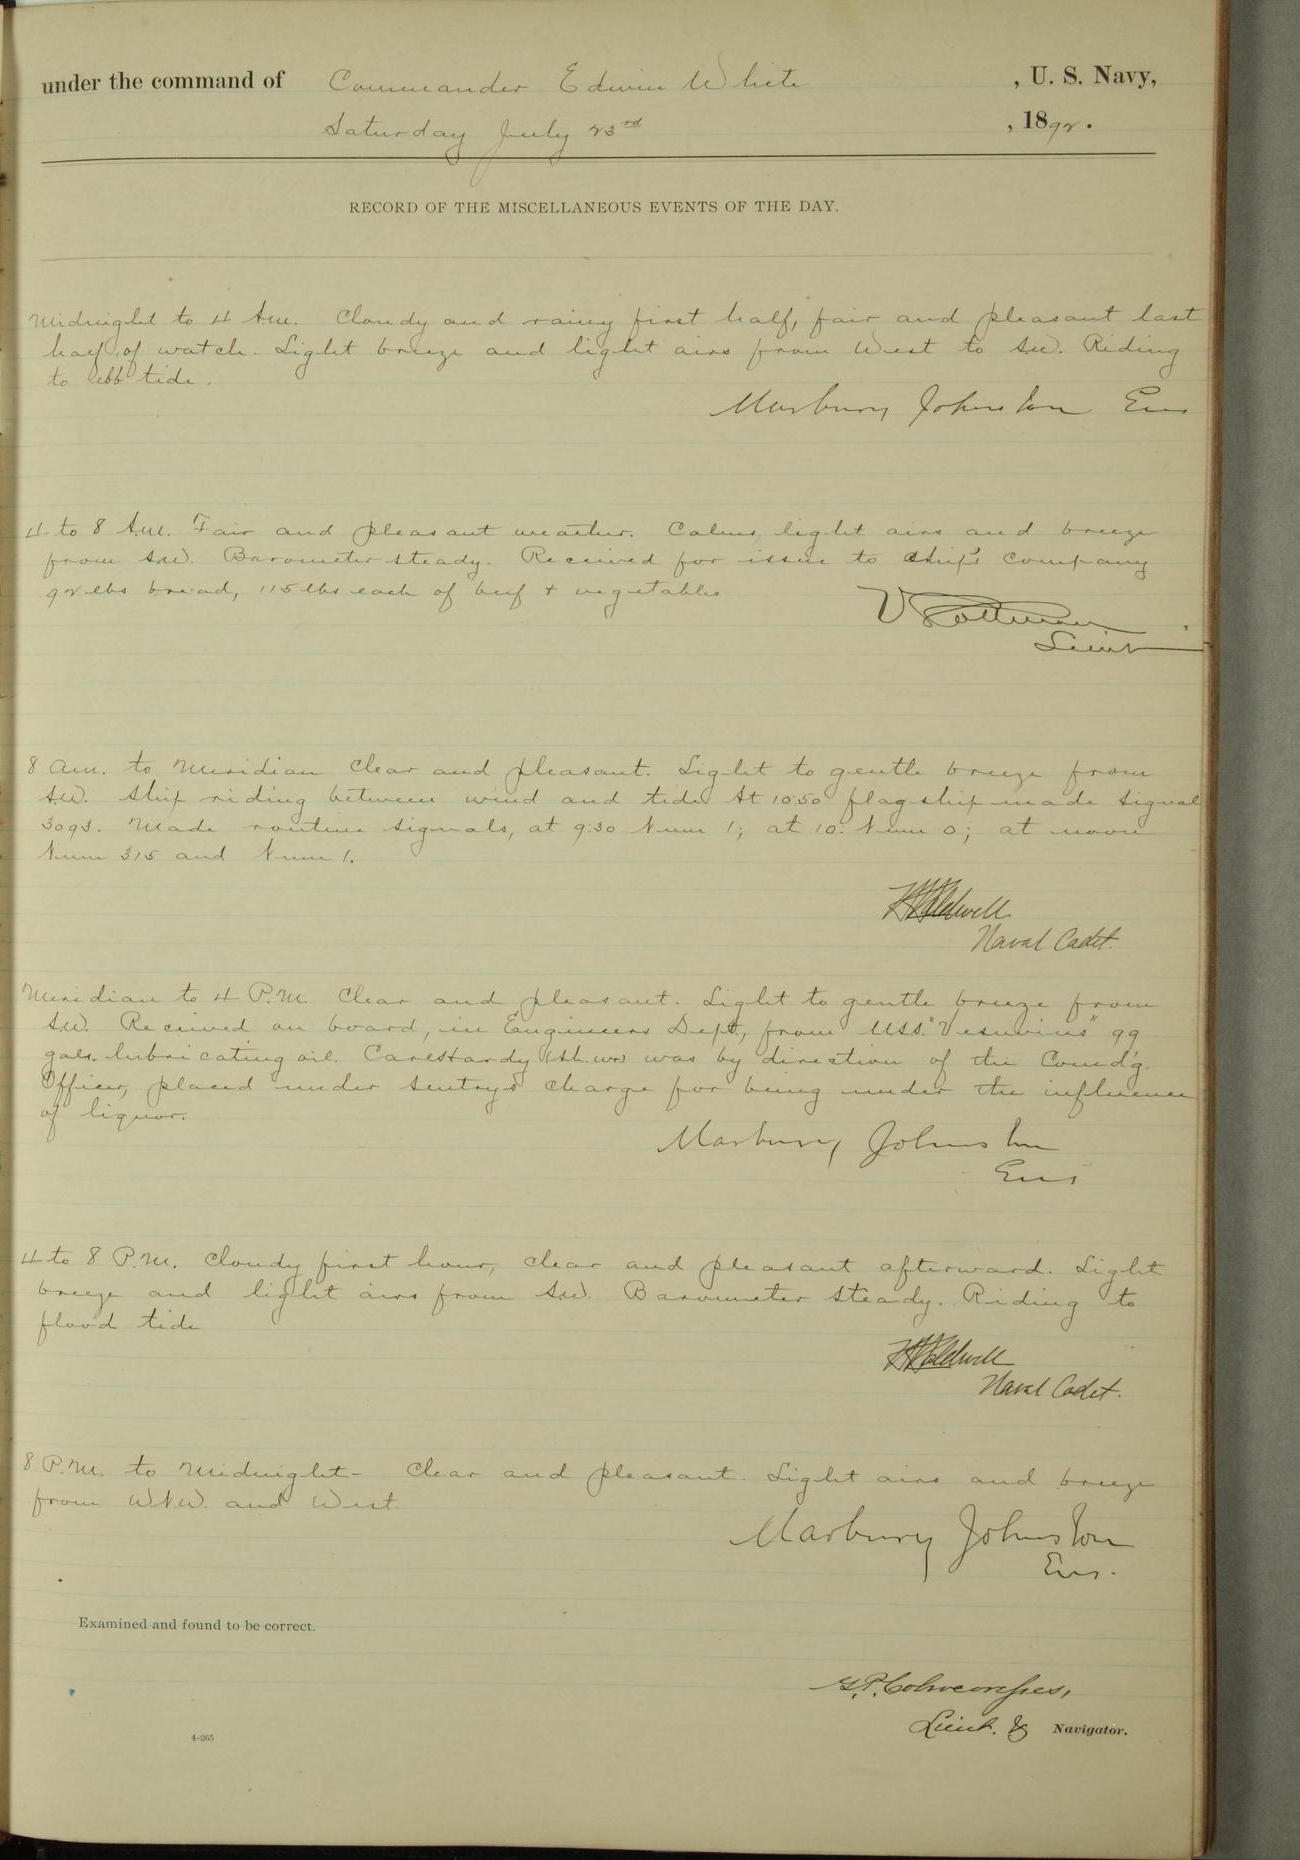 under the command of Commander Edwin White , U. S. Navy,
Saturday July 23rd , 1892.
RECORD OF THE MISCELLANEOUS EVENTS OF THE DAY.
Midnight to 4 A.m. Cloudy and rainy first half, fair and pleasant last
half of watch. Light breeze and light airs from West to SW. Riding
to ebb tide.
Marbury Johnston Ens
4 to 8 A.m. Fair and pleasant weather. Calms, light airs and breeze
from SW. Barometer steady. Received for issue to ship's company
92 lbs bread, 115 lbs each of beef + vegetables
Lieut
8 am. to Meridian Clear and pleasant. Light to gentle breeze from
SW. Ship riding between wind and tide. At 10:50 flagship made signal
3093. Made routine signals, at 9:30 Num 1; at 10: Num 0; at noon
Num 315 and Num 1.
Naval Cadet.
Meridian to 4 P.M. Clear and pleasant. Light to gentle breeze from
SW. Received on board, in Engineers Dept, from U.S.S. "Vesuvius" 99
gals. lubricating oil. Hardy was by direction of the Comd'g.
Officer, placed under sentry's charge for being under the influence
of liquor.
Marbury Johnston
Ens
4 to 8 P.M. Cloudy first hour, clear and pleasant afterward. Light
breeze and light airs from SW. Barometer steady. Riding to
flood tide
Naval Cadet.
8 P.M. to Midnight- Clear and pleasant. Light airs and breeze
from WNW. and West.
Marbury Johnston
Ens.
Examined and found to be correct.
G.P. Colvocoresses,
Lieut. & Navigator.
4-265